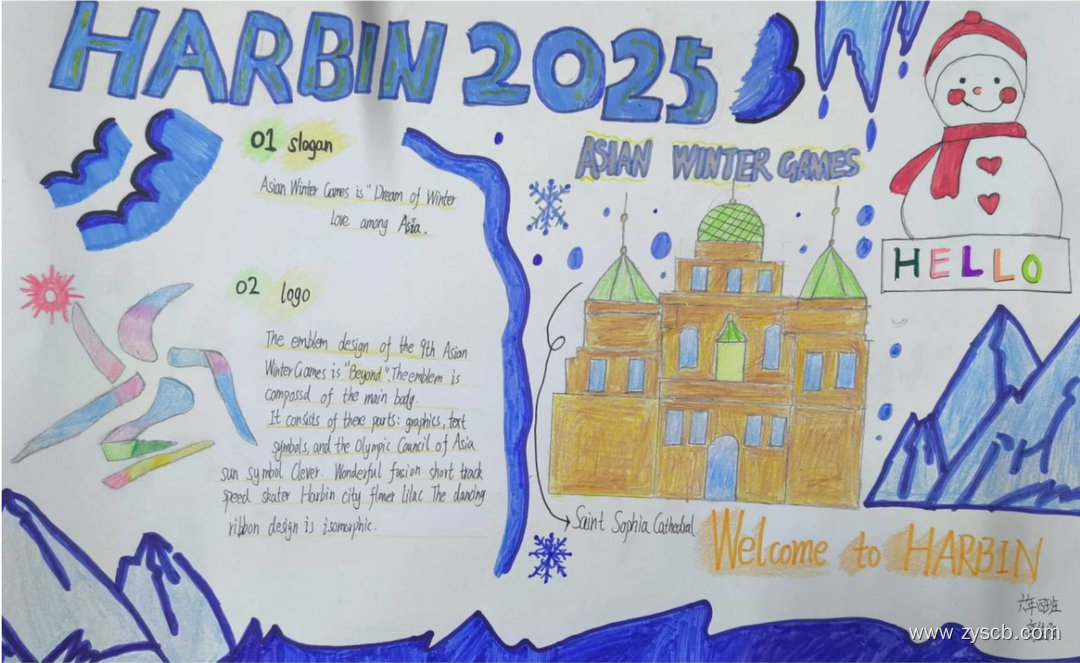 HARBIN 2025
01 slogan
Asian Winter Games is "Dream of Winter
Love among Asia.
02 logo
The emblem design of the 9th Asian
Winter Games is "Beyond". The emblem is
compossd of the main body.
It consists of these parts: graphics, text
symbols, and the Olympic Council of Asia
sun symbol Clever. Wonderful fusion short track
speed skater Harbin city flower lilac The dancing
ribbon design is isomorphic.
ASIAN WINTER GAMES
HELLO
Saint Sophia Cathedral
Welcome to HARBIN
六年四班
www.zyscb.com